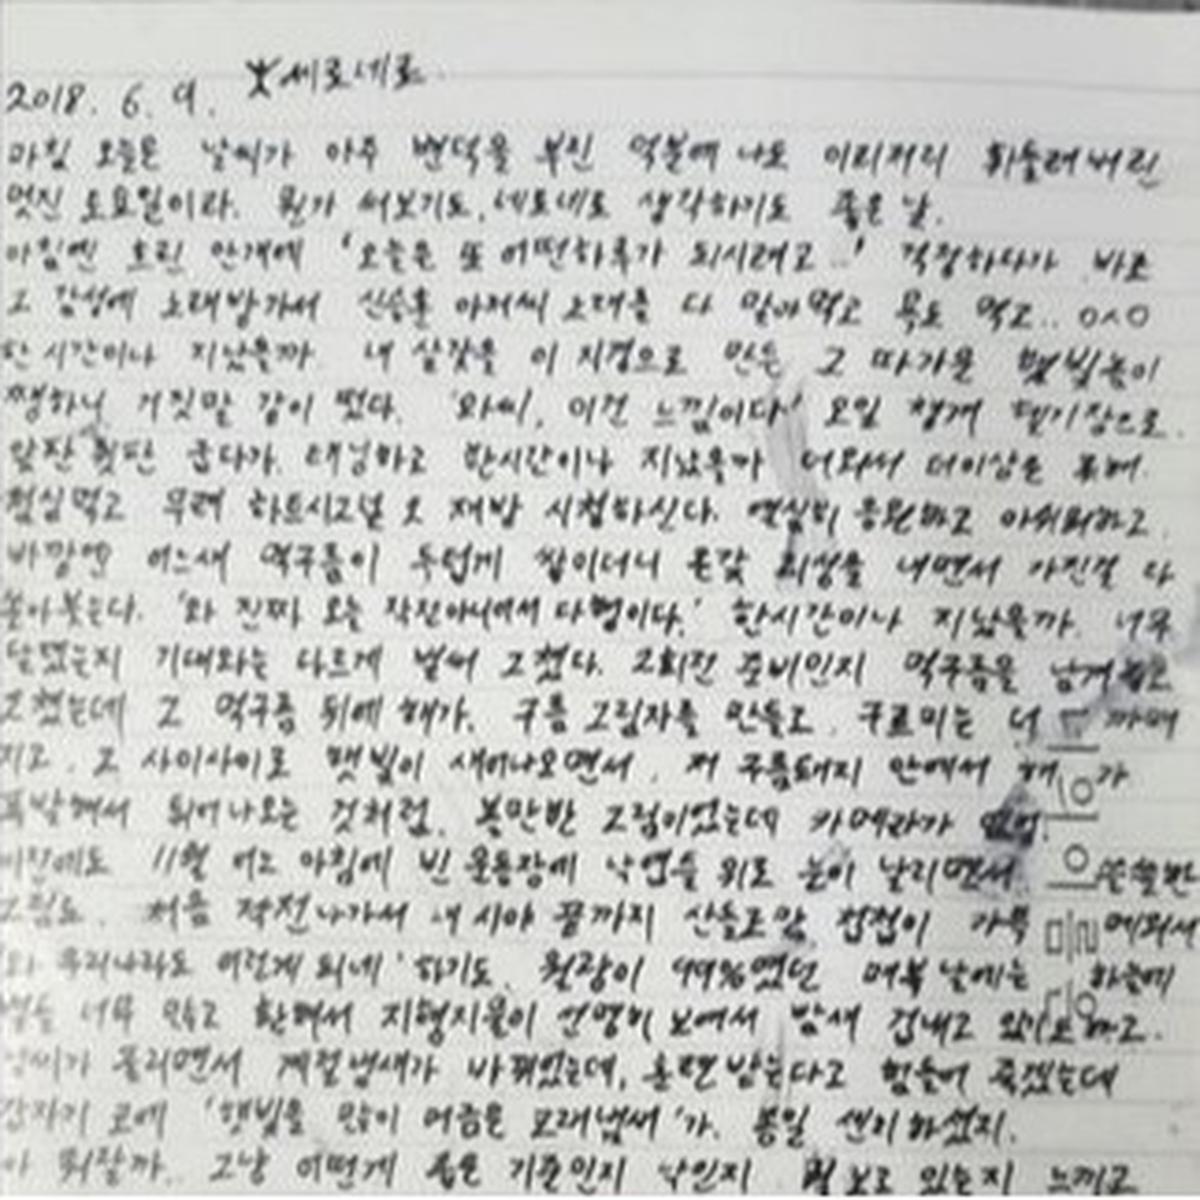 2018. 6. 9. 세로네로
마침 오늘은 날씨가 아주 변덕을 부린 덕분에 나도 이리저리 휘둘려버린
멋진 토요일이라. 뭔가 써보기도, 네로네로 생각하기도 좋은 날.
아침엔 흐린 안개에 '오늘은 또 어떤하루가 되시려고..' 걱정하다가 바로
그 감성에 노래방가서 신승훈 아저씨 노래를 다 말아먹고 목도 먹고.. ㅇㅅㅇ
한 시간이나 지났을까 내 살갗을 이 지경으로 만든 그 따가운 햇빛놈이
쨍하니 거짓말 같이 떴다. '와씨, 이건 느낌이다' 오일 챙겨 헬기장으로.
앞판 뒷판 굽다가, 태닝하고 한시간이나 지났을까 더이상은
점심먹고 무려 하트시그널 재방 시청하신다. 열심히 응원하고 아쉬워하고.
바깥엔 어느새 먹구름이 두텁게 쌓이더니 온갖 내면서 가진걸 다
쏟아붓는다. '와 진짜 오늘 작전아니어서 다행이다.' 한시간이나 지났을까. 너무
기대와는 다르게 벌써 그쳤다. 2회전 준비인지 먹구름을 남겨놓고
그쳤는데 그 먹구름 뒤에 해가, 구름 그림자를 만들고, 구르미는 더 까매
지고, 그 사이사이로 햇빛이 새어나오면서, 저 구름돼지 안에서 해가
폭발해서 튀어나오는 것처럼. 볼만한 그림이었는데 카메라가
이전에도 11월 어느 아침에 빈 운동장에 낙엽들 위로 눈이 날리면서 쓸쓸한
그림도. 처음 작전나가서 내 시야 끝까지 산들로만 첩첩이 가득 메워서
'와 우리나라도 이렇게 되네' 하기도. 월광이 99%였던 매복날에는 하늘에
별들 너무 많고 환해서 지형지물이 선명히 보여서 밤새 겁내고 있기도 하고.
날씨가 풀리면서 계절냄새가 바뀌었는데, 훈련받는다고 힘들어 죽겠는데
갑자기 코에 '햇빛을 많이 머금은 모래냄새'가. 봄일 센치하셨지.
아 뭐랄까.. 그냥 어떻게 기준인지 낙인지 뭘 보고 있는지 느끼고